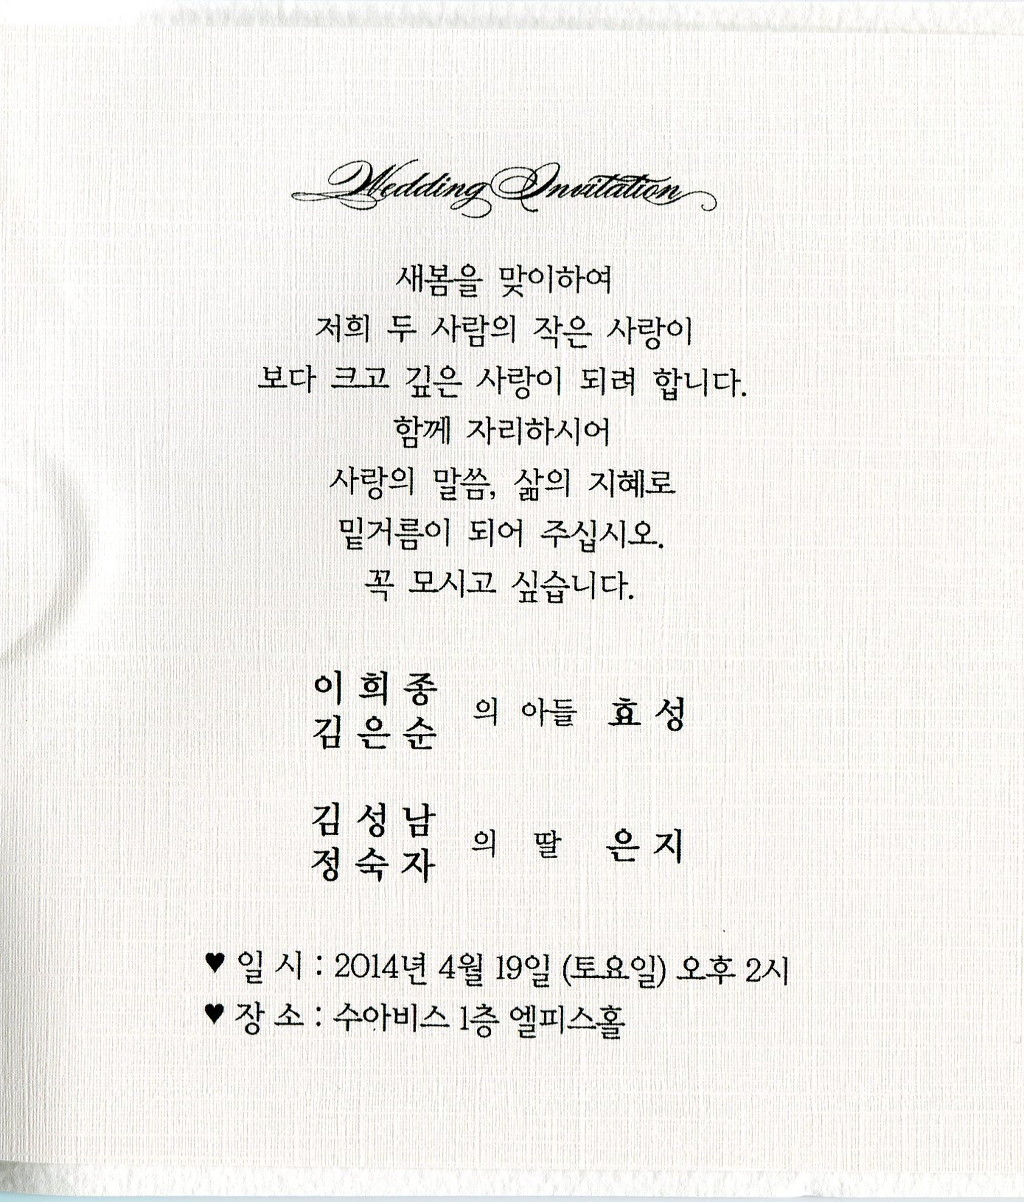 Wedding Invitation
새봄을 맞이하여
저희 두 사람의 작은 사랑이
보다 크고 깊은 사랑이 되려 합니다.
함께 자리하시어
사랑의 말씀, 삶의 지혜로
밑거름이 되어 주십시오.
꼭 모시고 싶습니다.
이희종
김은순 의 아들 효성
김성남
정숙자 의 딸 은지
♥ 일 시 : 2014년 4월 19일 (토요일) 오후 2시
♥ 장 소 : 수아비스 1층 엘피스홀